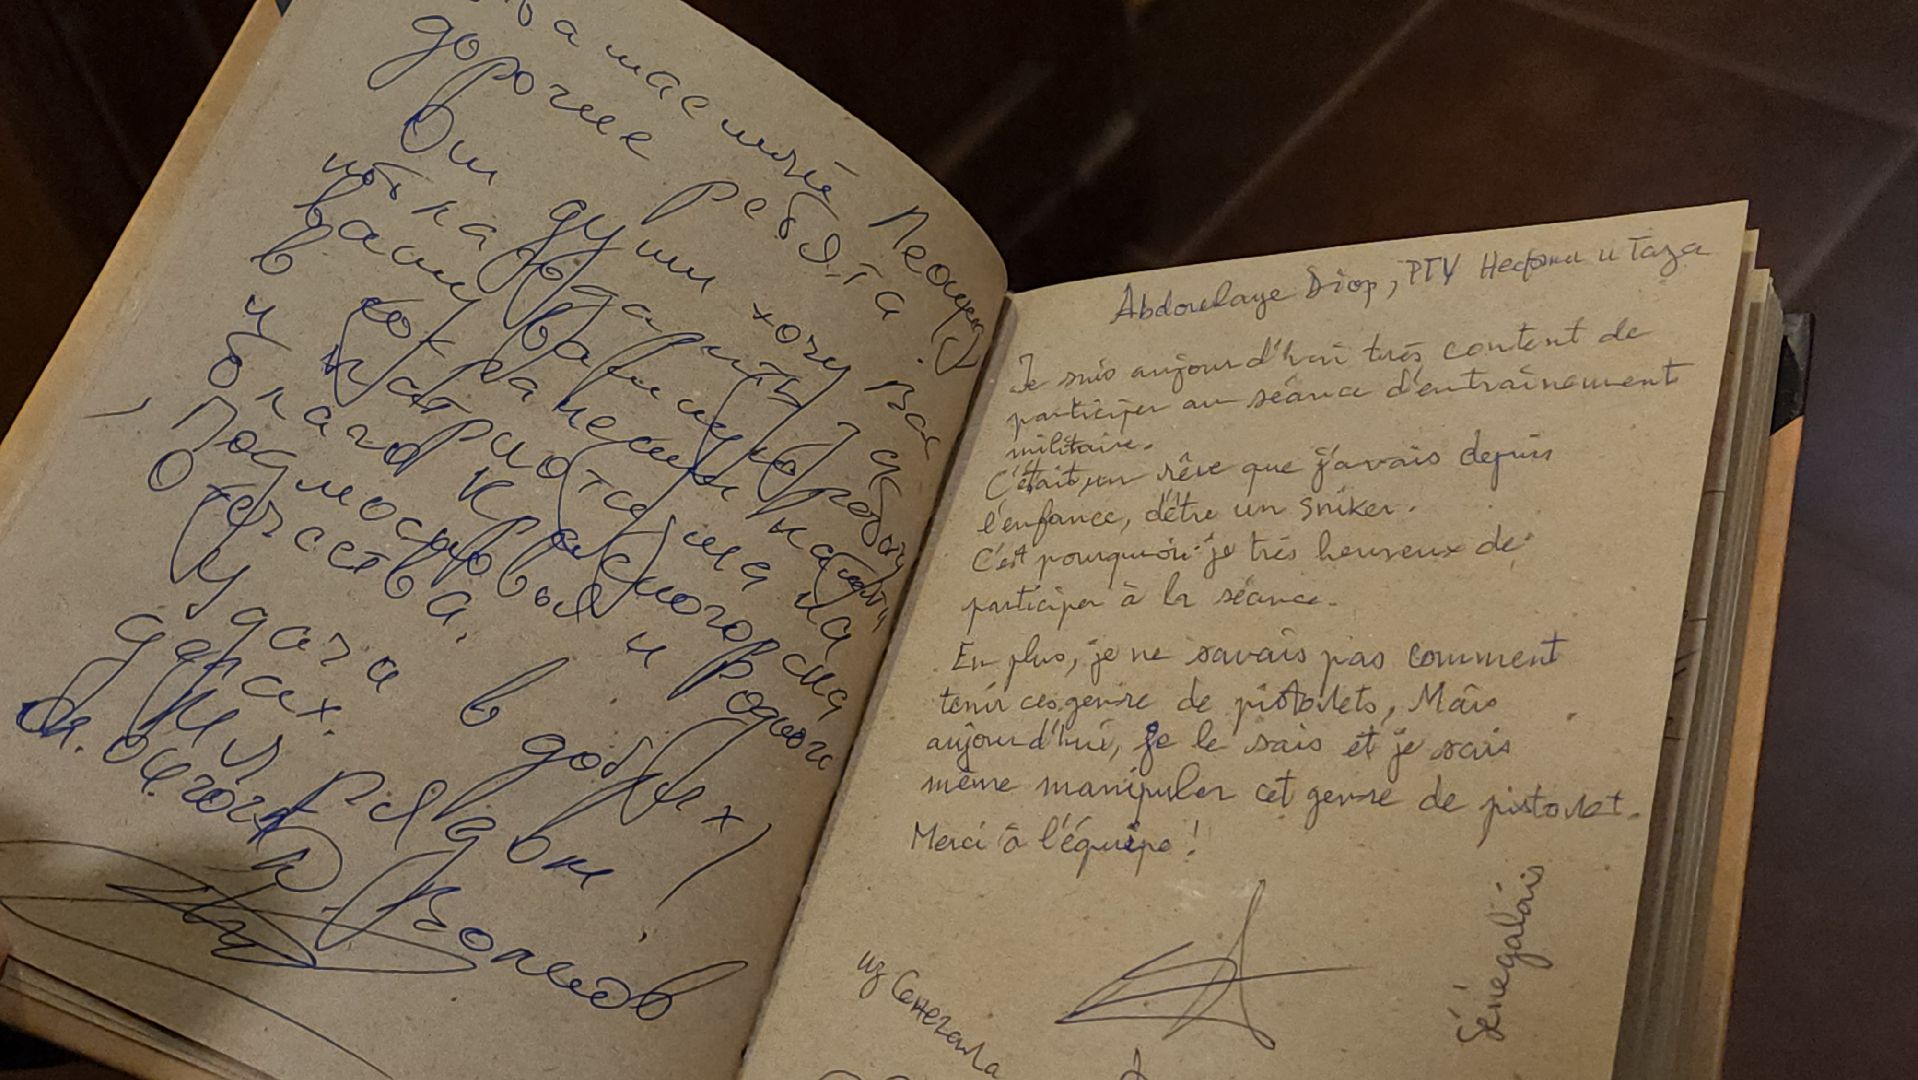 дорогие ребята.
От души хочу вас
поблагодарить за
вашу важную работу
в сохранении
и патриотизма на
благо Красногорска,
Подмосковья и родного
Отечества.
Удача в добрых
делах.
Abdoulaye Diop, РГУ Нефти и Газа
Je suis aujourd'hui très content de
participer au séance d'entraînement
militaire.
C'était un rêve que j'avais depuis
l'enfance, d'être un Sniker.
C'est pourquoi je très heureux de
participer à la séance.
En plus, je ne savais pas comment
tenir ces genre de pistolets, Mais
aujourd'hui, je le sais et je sais
même manipuler cet genre de pistolet.
Merci à l'équipe !
из Сенегала
Sénégalais